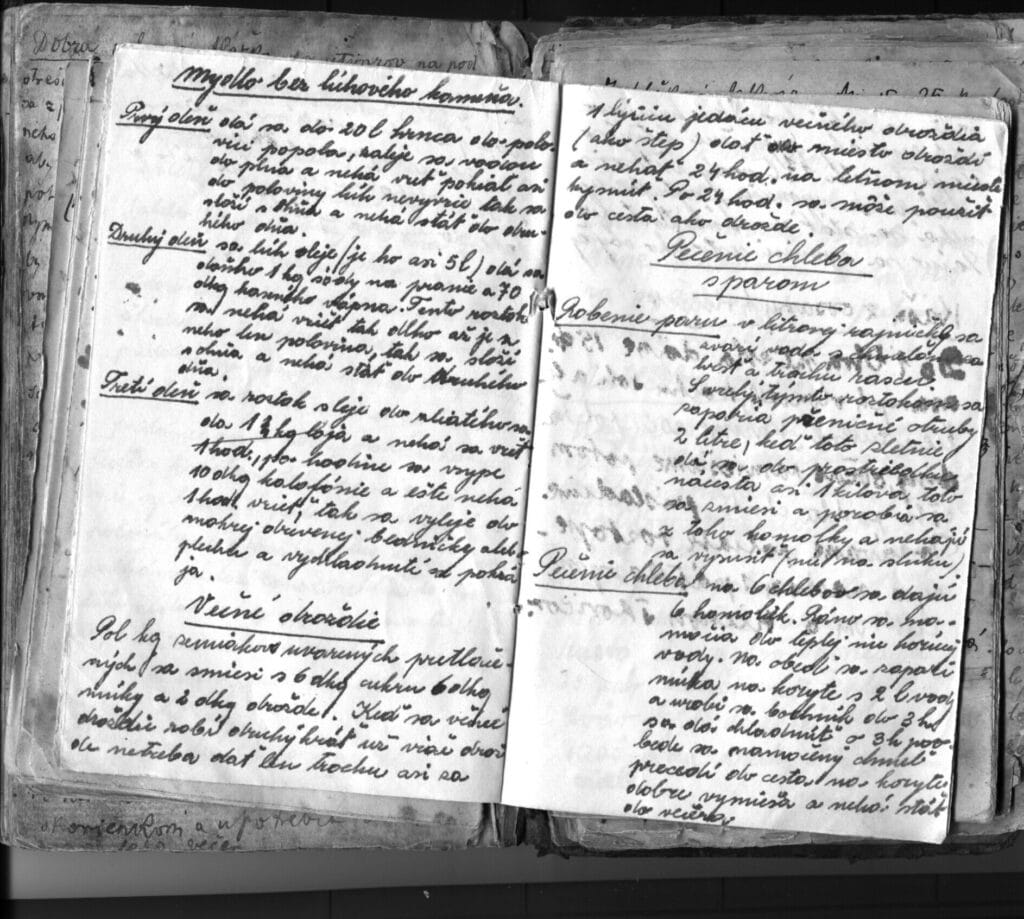 Dobrá
na pod
Mydlo bez lúhového kameňa.
Prvý deň dá sa do 20 l hrnca do polo-
vici popola, zaleje sa vodou
do plna a nehá vrieť pokiaľ asi
do poloviny lúh nevyvrie tak sa
zloží s ohňa a nehá stáť do dru-
hého dňa.
Druhý deň sa lúh sleje (je ho asi 5 l) dá sa
doňho 1 kg sódy na pranie a 70
dkg vápna. Tento roztok
sa nehá vrieť tak dlho až je z
neho len polovina, tak sa zloží
s ohňa a nehá stáť do druhého
dňa.
Tretí deň sa roztok sleje do sa
da 1½ kg loja a nehá sa vrieť
1 hod, po hodine sa vsype
10 dkg kalafónie a ešte nehá
1 hod vrieť tak sa vyleje do
mokrej drevenej bedničky alebo
plechu a vychladnutí sa pokrá
ja.
Večné droždie
Pol kg zemiakov uvarených pretlače-
ných sa zmiesi s 6 dkg cukru 6 dkg
múky a 2 dkg drožde. Keď sa večné
droždie robí druhý krát už viac drož
de netreba dať len trochu asi za
1 lyžicu jedácu večného droždia
(ako štep) dať do miesto droždí
a nehať 24 hod. na letnom mieste
kysnúť. Po 24 hod. sa môže použiť
do cesta ako drožde.
Pečenie chleba
s parom
Robenie paru v litrovej rajničke sa
zvarí voda s chmeľom za
hrsť a trochu rasce.
S vrelým tymto roztokom sa
paparia pšeničné otruby
2 litre, keď toto sletnie
dá sa do prostriedku
náčesta asi 1 kilová toto
sa zmiesi a porobia sa
z toho homolky a nehajú
sa vysušiť (nie na slnku)
Pečenie chleba na 6 chlebov sa dajú
6 homolák. Ráno sa na-
močia do teplej nie horúcej
vody. Na obed sa zaparí
múka na koryte s 2 l vody
a urobí sa bochník do 3 h
sa dá chladnúť o 3 h poo-
bede sa namočený chmeľ
precedí do cesta na koryte
dobre vymieša a nehá stáť
do večera.
korienkom a upotrebu